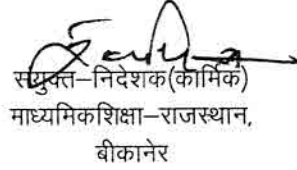 संयुक्त–निदेशक(कार्मिक)
माध्यमिकशिक्षा–राजस्थान,
बीकानेर